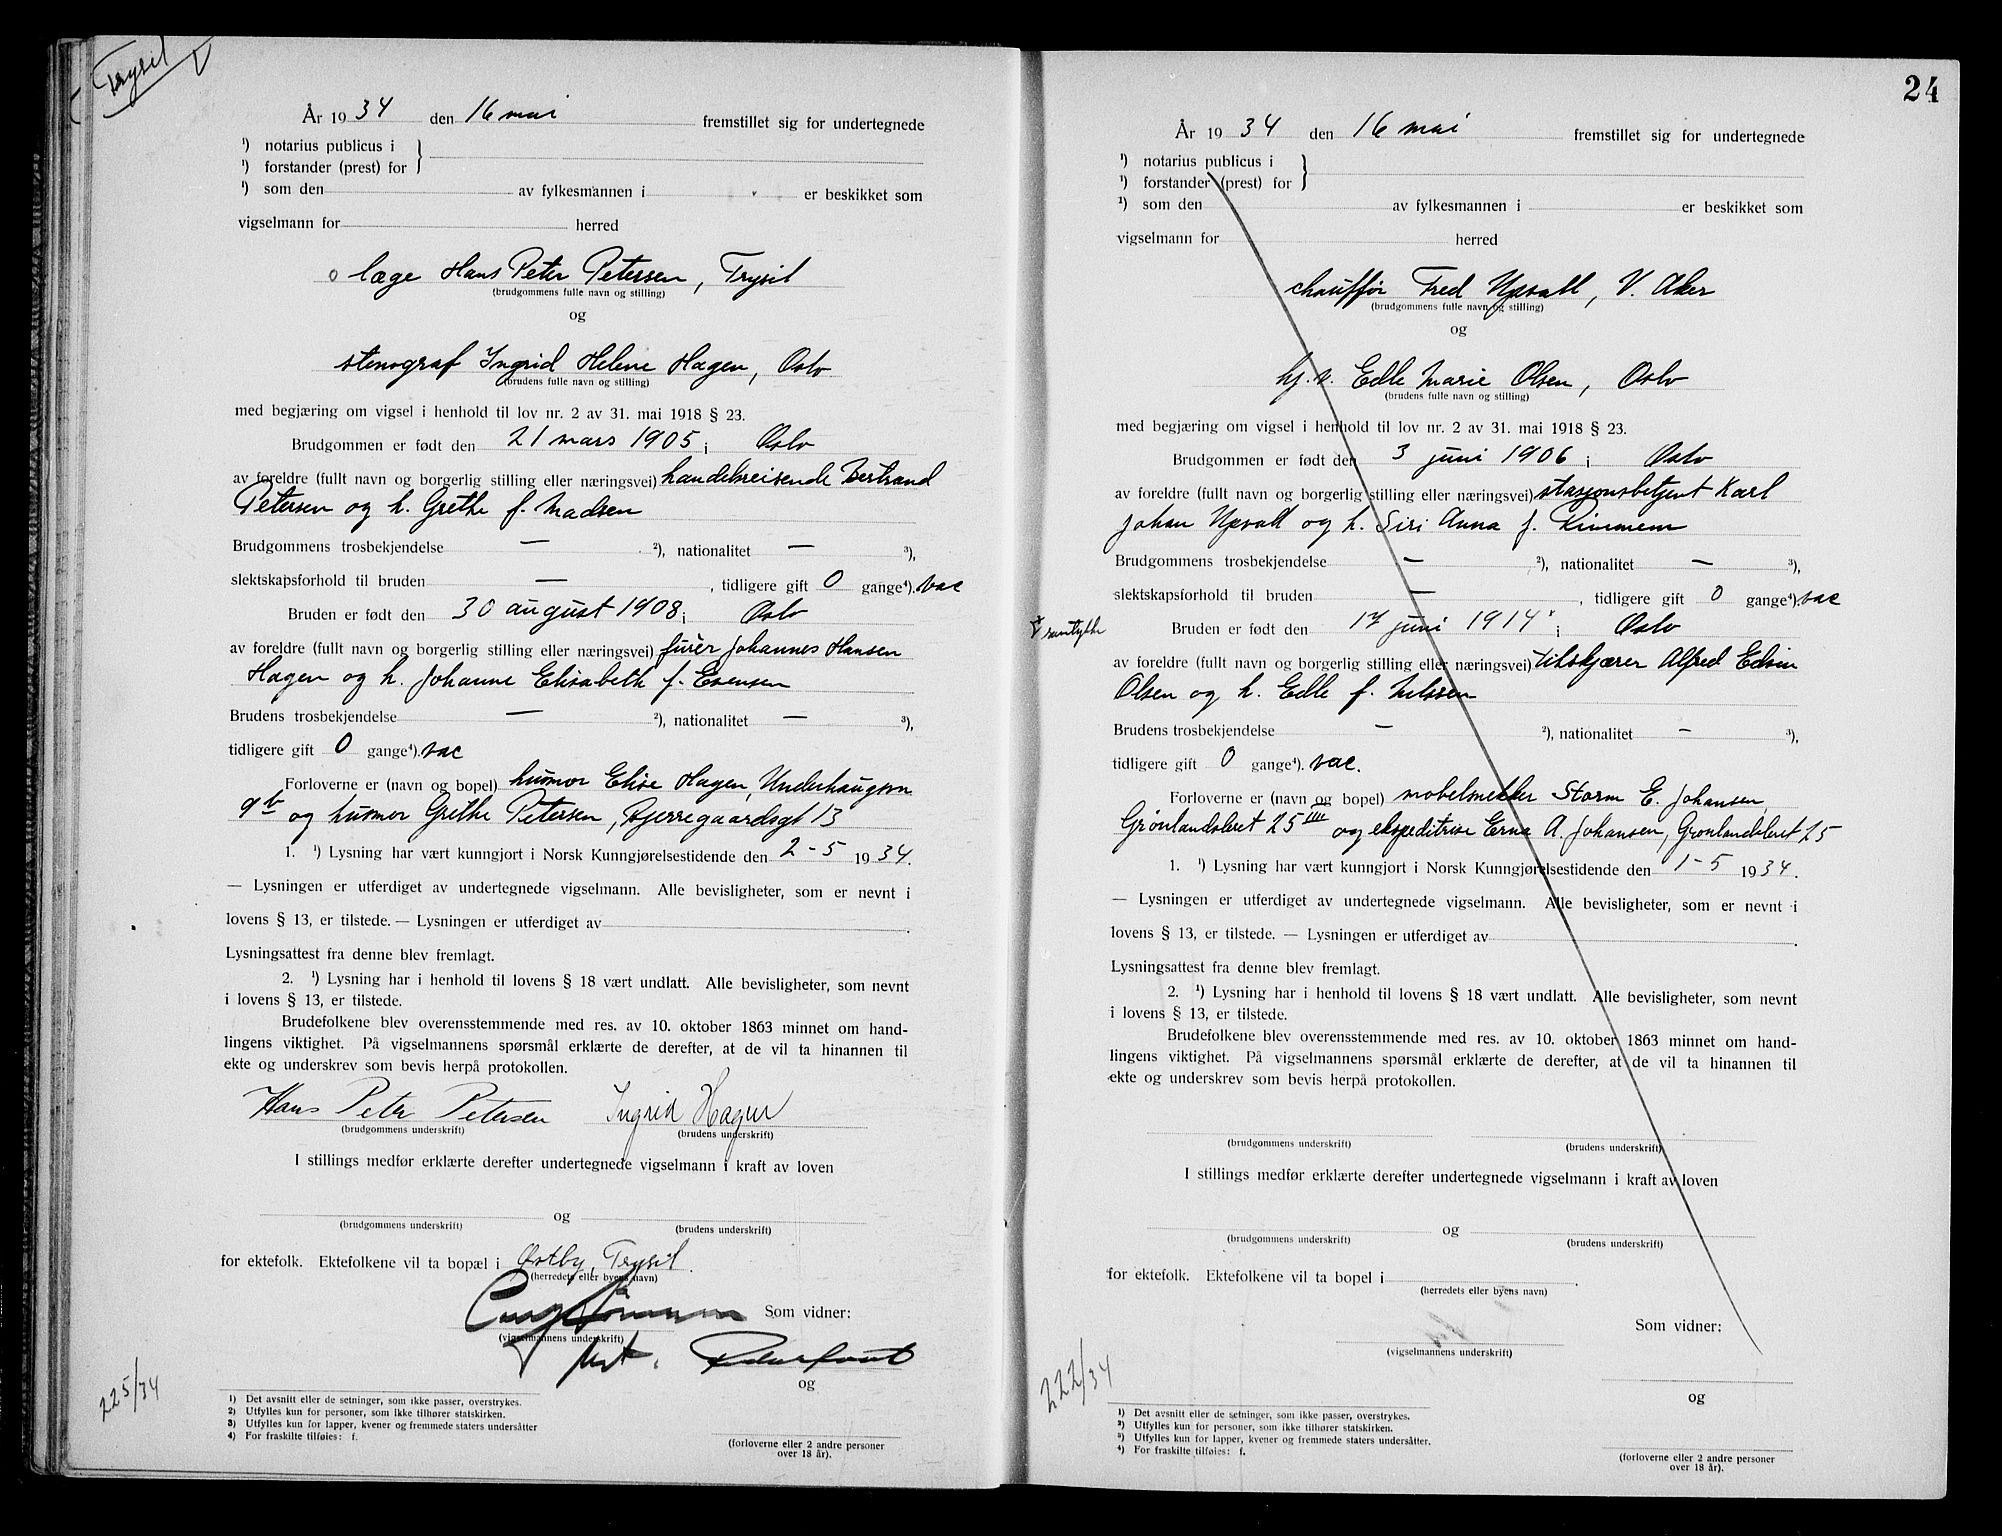 Trysil
År 1934 den 16 mai fremstillet sig for undertegnede
¹) notarius publicus i
¹) forstander (prest) for
¹) som den av fylkesmannen i er beskikket som
vigselmann for herred
læge Hans Peter Petersen, Trysil
(brudgommens fulle navn og stilling)
og
stenograf Ingrid Helene Hagen, Oslo
(brudens fulle navn og stilling)
med begjæring om vigsel i henhold til lov nr. 2 av 31. mai 1918 § 23.
Brudgommen er født den 21 mars 1905 i Oslo
av foreldre (fullt navn og borgerlig stilling eller næringsvei) handelsreisende Bertrand
Petersen og h. Grethe f. Madsen
Brudgommens trosbekjendelse — ²), nationalitet — ³),
slektskapsforhold til bruden — , tidligere gift 0 gange⁴). vac
Bruden er født den 30 august 1908 i Oslo
av foreldre (fullt navn og borgerlig stilling eller næringsvei) furer Johannes Hansen
Hagen og h. Johanne Elisabeth f. Evensen
Brudens trosbekjendelse — ²), nationalitet — ³),
tidligere gift 0 gange⁴). vac
Forloverne er (navn og bopel) husmor Elise Hagen, Underhaugsvn
9b og husmor Grethe Petersen, Bjerregaardsgt 13
1. ¹) Lysning har vært kunngjort i Norsk Kunngjørelsestidende den 2-5 1934.
— Lysningen er utferdiget av undertegnede vigselmann. Alle bevisligheter, som er nevnt i
lovens § 13, er tilstede. — Lysningen er utferdiget av .
Lysningsattest fra denne blev fremlagt.
2. ¹) Lysning har i henhold til lovens § 18 vært undlatt. Alle bevisligheter, som nevnt
i lovens § 13, er tilstede.
Brudefolkene blev overensstemmende med res. av 10. oktober 1863 minnet om hand-
lingens viktighet. På vigselmannens spørsmål erklærte de derefter, at de vil ta hinannen til
ekte og underskrev som bevis herpå protokollen.
Hans Peter Petersen Ingrid Hagen
(brudgommens underskrift) (brudens underskrift)
I stillings medfør erklærte derefter undertegnede vigselmann i kraft av loven
og
(brudgommens underskrift) (brudens underskrift)
for ektefolk. Ektefolkene vil ta bopæl i Østby, Trysil.
(herredets eller byens navn)
Som vidner:
(vigselmannens underskrift)
og
225/34
¹) Det avsnitt eller de setninger, som ikke passer, overstrykes.
²) Utfylles kun for personer, som ikke tilhører statskirken.
³) Utfylles kun for lapper, kvener og fremmede staters undersåtter
⁴) For fraskilte tilføies: f.
(forloverne eller 2 andre personer
over 18 år).
24
År 1934 den 16 mai fremstillet sig for undertegnede
¹) notarius publicus i
¹) forstander (prest) for
¹) som den av fylkesmannen i er beskikket som
vigselmann for herred
chauffør Fred Upsall, V. Aker
(brudgommens fulle navn og stilling)
og
hj. v. Edle Marie Olsen, Oslo
(brudens fulle navn og stilling)
med begjæring om vigsel i henhold til lov nr. 2 av 31. mai 1918 § 23.
Brudgommen er født den 3 juni 1906 i Oslo
av foreldre (fullt navn og borgerlig stilling eller næringsvei) stasjonsbetjent Karl
Johan Upsall og h. Siri Anna f. Rimmem
Brudgommens trosbekjendelse — ²), nationalitet — ³),
slektskapsforhold til bruden — , tidligere gift 0 gange⁴). vac
samtykke
Bruden er født den 17 juni 1914 i Oslo
av foreldre (fullt navn og borgerlig stilling eller næringsvei) tilskjærer Alfred Edvin
Olsen og h. Edle f. Nilssen
Brudens trosbekjendelse — ²), nationalitet — ³),
tidligere gift 0 gange⁴). vac.
Forloverne er (navn og bopel) møbelsnekker Storm E. Johansen,
Grønlandsleret 25 IIII og ekspeditrise Erna A. Johansen, Grønlandsleret 25
1. ¹) Lysning har vært kunngjort i Norsk Kunngjørelsestidende den 1-5 1934.
— Lysningen er utferdiget av undertegnede vigselmann. Alle bevisligheter, som er nevnt i
lovens § 13, er tilstede. — Lysningen er utferdiget av .
Lysningsattest fra denne blev fremlagt.
2. ¹) Lysning har i henhold til lovens § 18 vært undlatt. Alle bevisligheter, som nevnt
i lovens § 13, er tilstede.
Brudefolkene blev overensstemmende med res. av 10. oktober 1863 minnet om hand-
lingens viktighet. På vigselmannens spørsmål erklærte de derefter, at de vil ta hinannen til
ekte og underskrev som bevis herpå protokollen.
(brudgommens underskrift) (brudens underskrift)
I stillings medfør erklærte derefter undertegnede vigselmann i kraft av loven
og
(brudgommens underskrift) (brudens underskrift)
for ektefolk. Ektefolkene vil ta bopel i .
(herredets eller byens navn)
Som vidner:
(vigselmannens underskrift)
og
222/34
¹) Det avsnitt eller de setninger, som ikke passer, overstrykes.
²) Utfylles kun for personer, som ikke tilhører statskirken.
³) Utfylles kun for lapper, kvener og fremmede staters undersåtter.
⁴) For fraskilte tilføies: f.
(forloverne eller 2 andre personer
over 18 år).